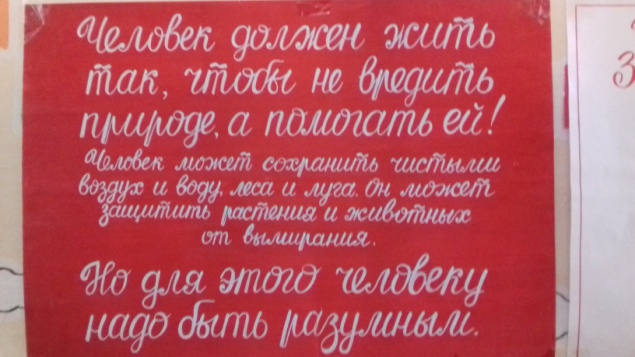 Человек должен жить
так, чтобы не вредить
природе, а помогать ей!
Человек может сохранить чистыми
воздух и воду, леса и луга. Он может
защитить растения и животных
от вымирания.
Но для этого человеку
надо быть разумным.